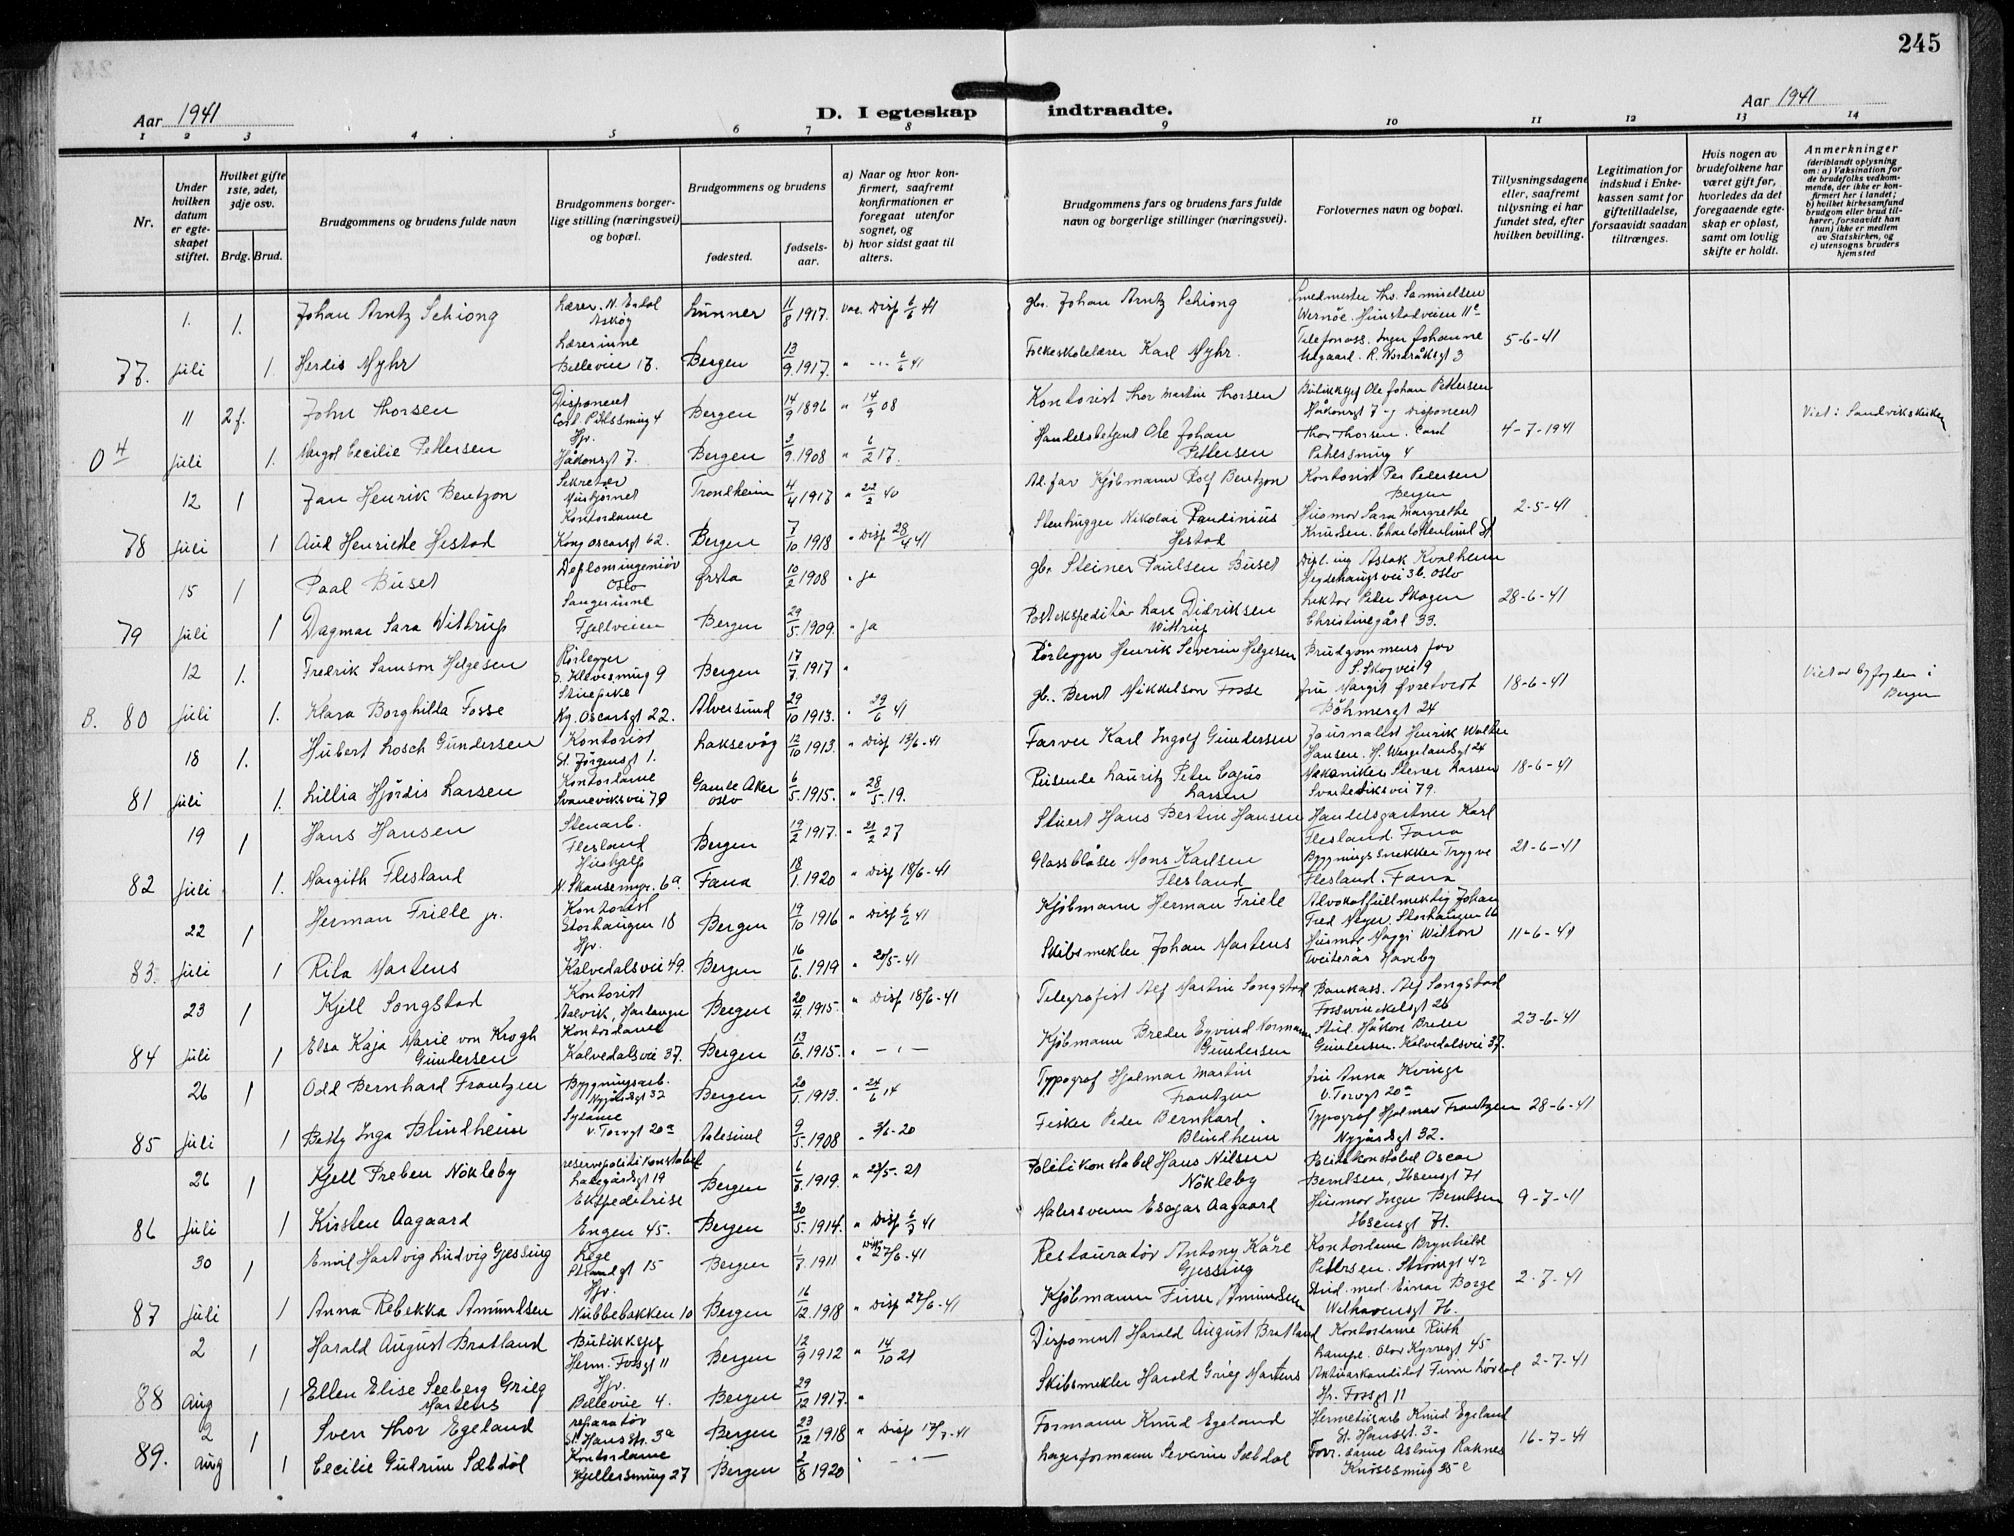 245
Aar 1941
D. I egteskap indtraadte.
Aar 1941
1 2 3 4 5 6 7 8 9 10 11 12 13 14
Nr.
Under hvilken datum er egteskapet stiftet.
Hvilket gifte 1ste, 2det, 3dje osv.
Brdg. Brud.
Brudgommens og brudens fulde navn
Brudgommens borgerlige stilling (næringsvei) og bopæl.
Brudgommens og brudens
fødested.
fødselsaar.
a) Naar og hvor konfirmert, saafremt konfirmationen er foregaat utenfor sognet, og
b) hvor sidst gaat til alters.
Brudgommens fars og brudens fars fulde navn og borgerlige stillinger (næringsvei).
Forlovernes navn og bopæl.
Tillysningsdagene eller, saafremt tillysning ei har fundet sted, efter hvilken bevilling.
Legitimation for indskud i Enkekassen samt for giftetilladelse, forsaavidt saadan tiltrænges.
Hvis nogen av brudefolkene har været gift før, hvorledes da det foregaaende egteskap er opløst, samt om lovlig skifte er holdt.
Anmerkninger
(deriblandt oplysning om: a) Vaksination for de brudefolks vedkommende, der ikke er konfirmert her i landet;
b) hvilket kirkesamfund brudgom eller brud tilhører, forsaavidt han (hun) ikke er medlem av Statskirken, og
c) utensogns bruders hjemsted
1. 1. Johan Arntz Schiong Lærer. N. Erdal Askøy Lunner 11/8 1917. Vac. Disp 6/6 41 gbr. Johan Arntz Schiong Smedmester Ths. Samuelsen
77. Juli 1. Herdis Myhr Lærerinne Bellevue 18. Bergen 13/9 1917. " - " - 6/6 41 Folkeskolelærer Karl Myhr. Telefonass. Inger Johanne R. Nordråksgt 3 5-6-41
11 2 f. John Thorsen Disponent Carl Pihlssmug 4 Bergen 14/9 1896 " 14/9 08 Kontorist Thor Martin Thorsen Butikksjef Ole Johan Pettersen Håkonsgt 7 og disponent
O 4 Juli 1. Margot Cecilie Pettersen Hjv. Håkonsgt 7. Bergen 3/9 1908 " 6/2 17. Handelsbetjent Ole Johan Pettersen Thor Thorsen. Carl Pihlssmug 4 4-7-1941 Viet i Sandvikskirken
12 1 Jan Henrik Bentzon Sekretær Trondheim 4/4 1917 " 22/2 40 Ad. far Kjøbmann Rolf Bentzon Kontorist Per Pedersen Bergen
78 Juli 1 Aud Henriette Hestad Kontordame Kong Oscarsgt 62. Bergen 7/10 1918 " Disp 28/4 41 Stenhugger Nikolai Paudinius Hestad Husmor Sara Margrethe Knudsen. Charlottenlund St 2-5-41
15 1 Paal Buset Diplomingeniør Oslo Ørsta 10/2 1908 " ja gbr. Steiner Paulsen Buset Dipl. ing Aslak Kvalheim Oslo
79 Juli 1 Dagmar Sara Wittrup Sangerinne Fjellveien Bergen 29/5 1909. " ja Postekspeditør Lars Didriksen Wittrup Lektor Peter Skogen Christinegård 33. 28-6-41
12 1. Fredrik Samson Helgesen Rørlegger 9 Bergen 17/7 1917 " Rørlegger Henrik Severin Helgesen Brudgommens far S. Skogvei 9
B. 80 Juli 1. Klara Borghilda Fosse Stuepike Kg. Oscarsgt 22. Alversund 29/10 1913. " 29/6 41 gb. Bernt Mikkelson Fosse Fru Margit Øvretvedt Böhmergt 24 18-6-41 Viet av byfogden i Bergen
18 1. Hubert Losch Gundersen Kontorist St. Jørgensgt 1. Laksevåg 12/10 1913. " Disp 13/6-41 Farver Karl Ingolf Gundersen Journalist Henrik Walter Hansen. H. Wergelandsgt 24
81 Juli 1. Lillia Hjørdis Larsen Kontordame Svaneviksvei 79 Gamle Aker Oslo 6/5. 1915. " 28/5. 19. Reisende Lauritz Peter Cajus Larsen Mekaniker Stener Larsen 79. 18-6-41
19 1 Hans Hansen Stenarb. Flesland Bergen 19/2 1917. " 21/2 27 Stuert Hans Bertin Hansen Handelsgartner Karl Flesland. Fana
82 Juli 1. Margith Flesland Hushjelp N. Skansemyr. 6a. Fana 18/1. 1920 " Disp 18/6-41 Glassblåser Mons Karlsen Flesland Bygningssnekker Trygve Flesland. Fana 21-6-41
22 1 Herman Friele jr. Kontorist Storhaugen 18 Bergen 19/10 1916 " Disp 6/6 41 Kjøbmann Herman Friele Advokatfullmektig Johan Fred Meyer Storhaugen 16
83. Juli 1 Rita Martens Hjv. Kalvedalsvei 49. Bergen 16/6. 1919 " 20/5-41 Skibsmekler Johan Martens Husmor Maggi Wilson Tveiterås Hoveby 11-6-41
23 1 Kjell Songstad Kontorist Aalvik, Hardanger Bergen 20/4. 1915. " Disp 18/6-41 Telegrafist Alf Martin Songstad Bankass. Alf Songstad Fosswinckelsgt 26
84 Juli 1 Elsa Kaja Marie von Krogh Gundersen Kontordame Kalvedalsvei 37. Bergen 13/6. 1915. " - " - Kjøbmann Breder Eyvind Normann Gundersen Stud. Håkon Breder Gundersen. Kalvedalsvei 37. 23-6-41
26 1 Odd Bernhard Frantzen Bygningsarb. Nygårdsgt 32 Bergen 20/1. 1913. " 24/6 14 Typograf Hjalmar Martin Frantzen Fru Anna Kvinge V. Torvgt 20a
85 Juli 1 Betty Inga Blindheim Sydame V. Torvgt 20a Aalesund 9/5. 1908 " 3/6-20 Fisker Peder Bernhard Blindheim Typograf Hjalmar Frantzen Nygårdsgt 32. 28-6-41
26 1 Kjell Preben Nökleby reservepolitikonstabel Ladegårdsgt 19 Bergen 6/8. 1919. " 23/5-21 Politikonstabel Hans Nilsen Nökleby Politikonstabel Oscar Berntsen, Ibsensgt 71
86 Juli 1 Kirsten Aagaard Ekspeditrise Engen 45. Bergen 30/5. 1914. " Disp 6/7 41 Malersvenn Esajas Aagaard Husmor Inger Berntsen Ibsensgt 71. 9-7-41
30 1 Emil Hartvig Ludvig Gjessing Lege 15 Bergen 1/7. 1911 " Disp 27/6-41 Restauratør Antony Kåre Gjessing Kontordame Brynhild Pettersen. Strømgt 42
87 Juli 1 Anna Rebekka Amundsen Hjv. Nubbebakken 10 Bergen 16/12. 1918 " Disp 27/6-41 Kjøbmann Finn Amundsen Stud. med. Einar Borge Welhavensgt 76. 2-7-41
2 1 Harald August Bratland Butikksjef Herm. Fossgt 11 Bergen 12/9 1912 " 14/10 21 Disponent Harald August Bratland Kontordame Ruth Lampe. Olav Kyrresgt 45
88 Aug 1 Ellen Elise Seeberg Grieg Martens Hjv. Bellevue 4. Bergen 29/12 1917. " Skibsmekler Harald Grieg Martens Aktuarkandidat Finn Lövdal Hr. Fossgt 11 2-7-41
2 1 Sven Thor Egeland reparatør St. Hansstr. 3a Bergen 23/12 1918 " Disp 17/7-41 Formann Knud Egeland Hermetikarb Knud Egeland St. Hansgt. 3-
89. Aug 1 Cecilie Gudrun Sæbdal Kontordame Kjellersmug 27 Bergen 2/8 1920 " - " - Lagerformann Severin Sæbdal Forr. dame Aslaug Raknes Knøsesmug 35 c 16-7-41